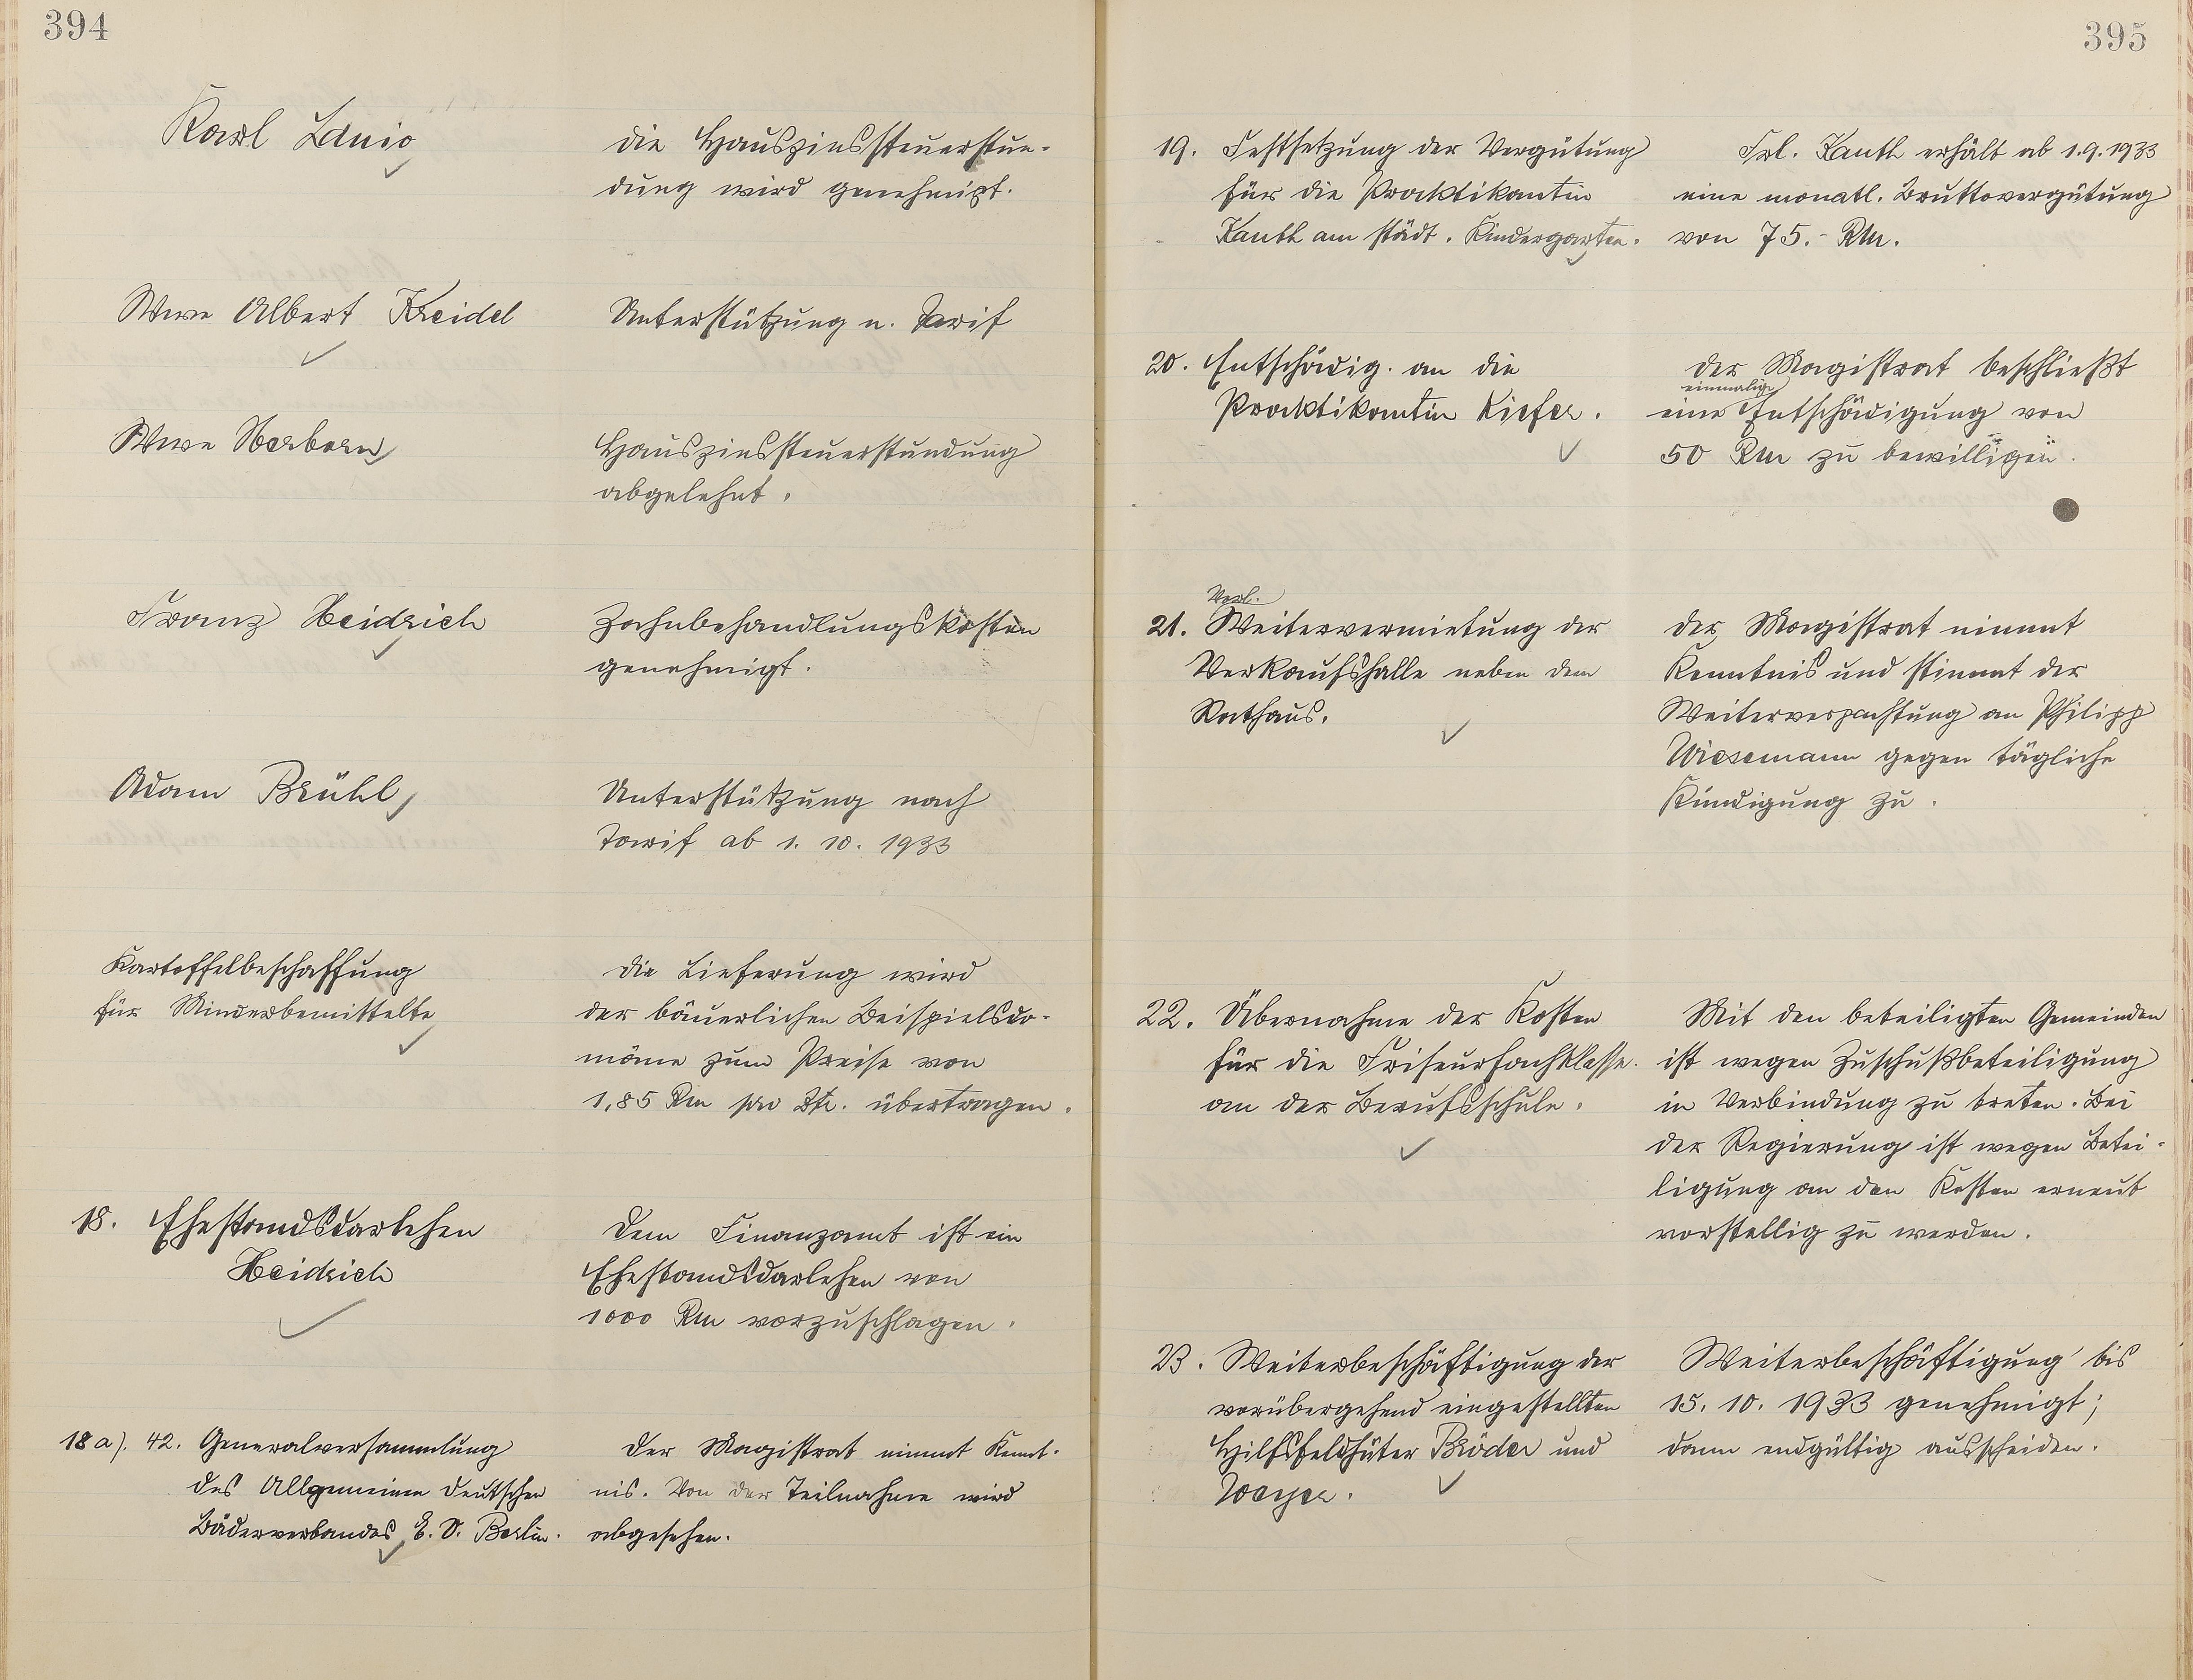 394
Karl Lanio
die Hauszinssteuerstun-
dung wird genehmigt.
Wwe Albert Kreidel
Unterstützung n. Tarif
Wwe Norborn
Hauszinssteuerstundung
abgelehnt.
Franz Heidrich
Zahnbehandlungskosten
genehmigt.
Adam Brühl
Unterstützung nach
Tarif ab 1. 10. 1933
Kartoffelbeschaffung
für Minderbemittelte
die Lieferung wird
der bäuerlichen Beispielsdo-
mäne zum Preise von
1,85 Rm pro Ztr. übertragen.
18. Ehestandsdarlehen
Heidrich
Dem Finanzamt ist ein
Ehestandsdarlehen von
1000 Rm vorzuschlagen.
18a). 42. Generalversammlung
des Allgemeinen deutschen
Bäderverbandes, E. V. Berlin.
Der Magistrat nimmt Kennt-
nis. Von der Teilnahme wird
abgesehen.
395
19. Festsetzung der Vergütung
für die Praktikantin
Kauth am städt. Kindergarten.
Frl. Kauth erhält ab 1.9.1933
eine monatl. Bruttovergütung
von 75.- Rm.
20. Entschädig. an die
Praktikantin Kiefer.
der Magistrat beschließt
einmalige
eine Entschädigung von
50 Rm zu bewilligen.
21. Weitervermietung der
Verkaufshalle neben dem
Rathaus.
der Magistrat nimmt
Kenntnis und stimmt der
Weiterverpachtung an Philipp
Wiesemann gegen tägliche
Kündigung zu.
22. Übernahme der Kosten
für die Friseurfachklasse
an der Berufsschule.
Mit den beteiligten Gemeinden
ist wegen Zuschußbeteiligung
in Verbindung zu treten. Bei
der Regierung ist wegen Betei-
ligung an den Kosten erneut
vorstellig zu werden.
23. Weiterbeschäftigung der
vorübergehend eingestellten
Hilfsfeldhüter Bröder und
Weiterbeschäftigung bis
15. 10. 1933 genehmigt;
dann endgültig ausscheiden.